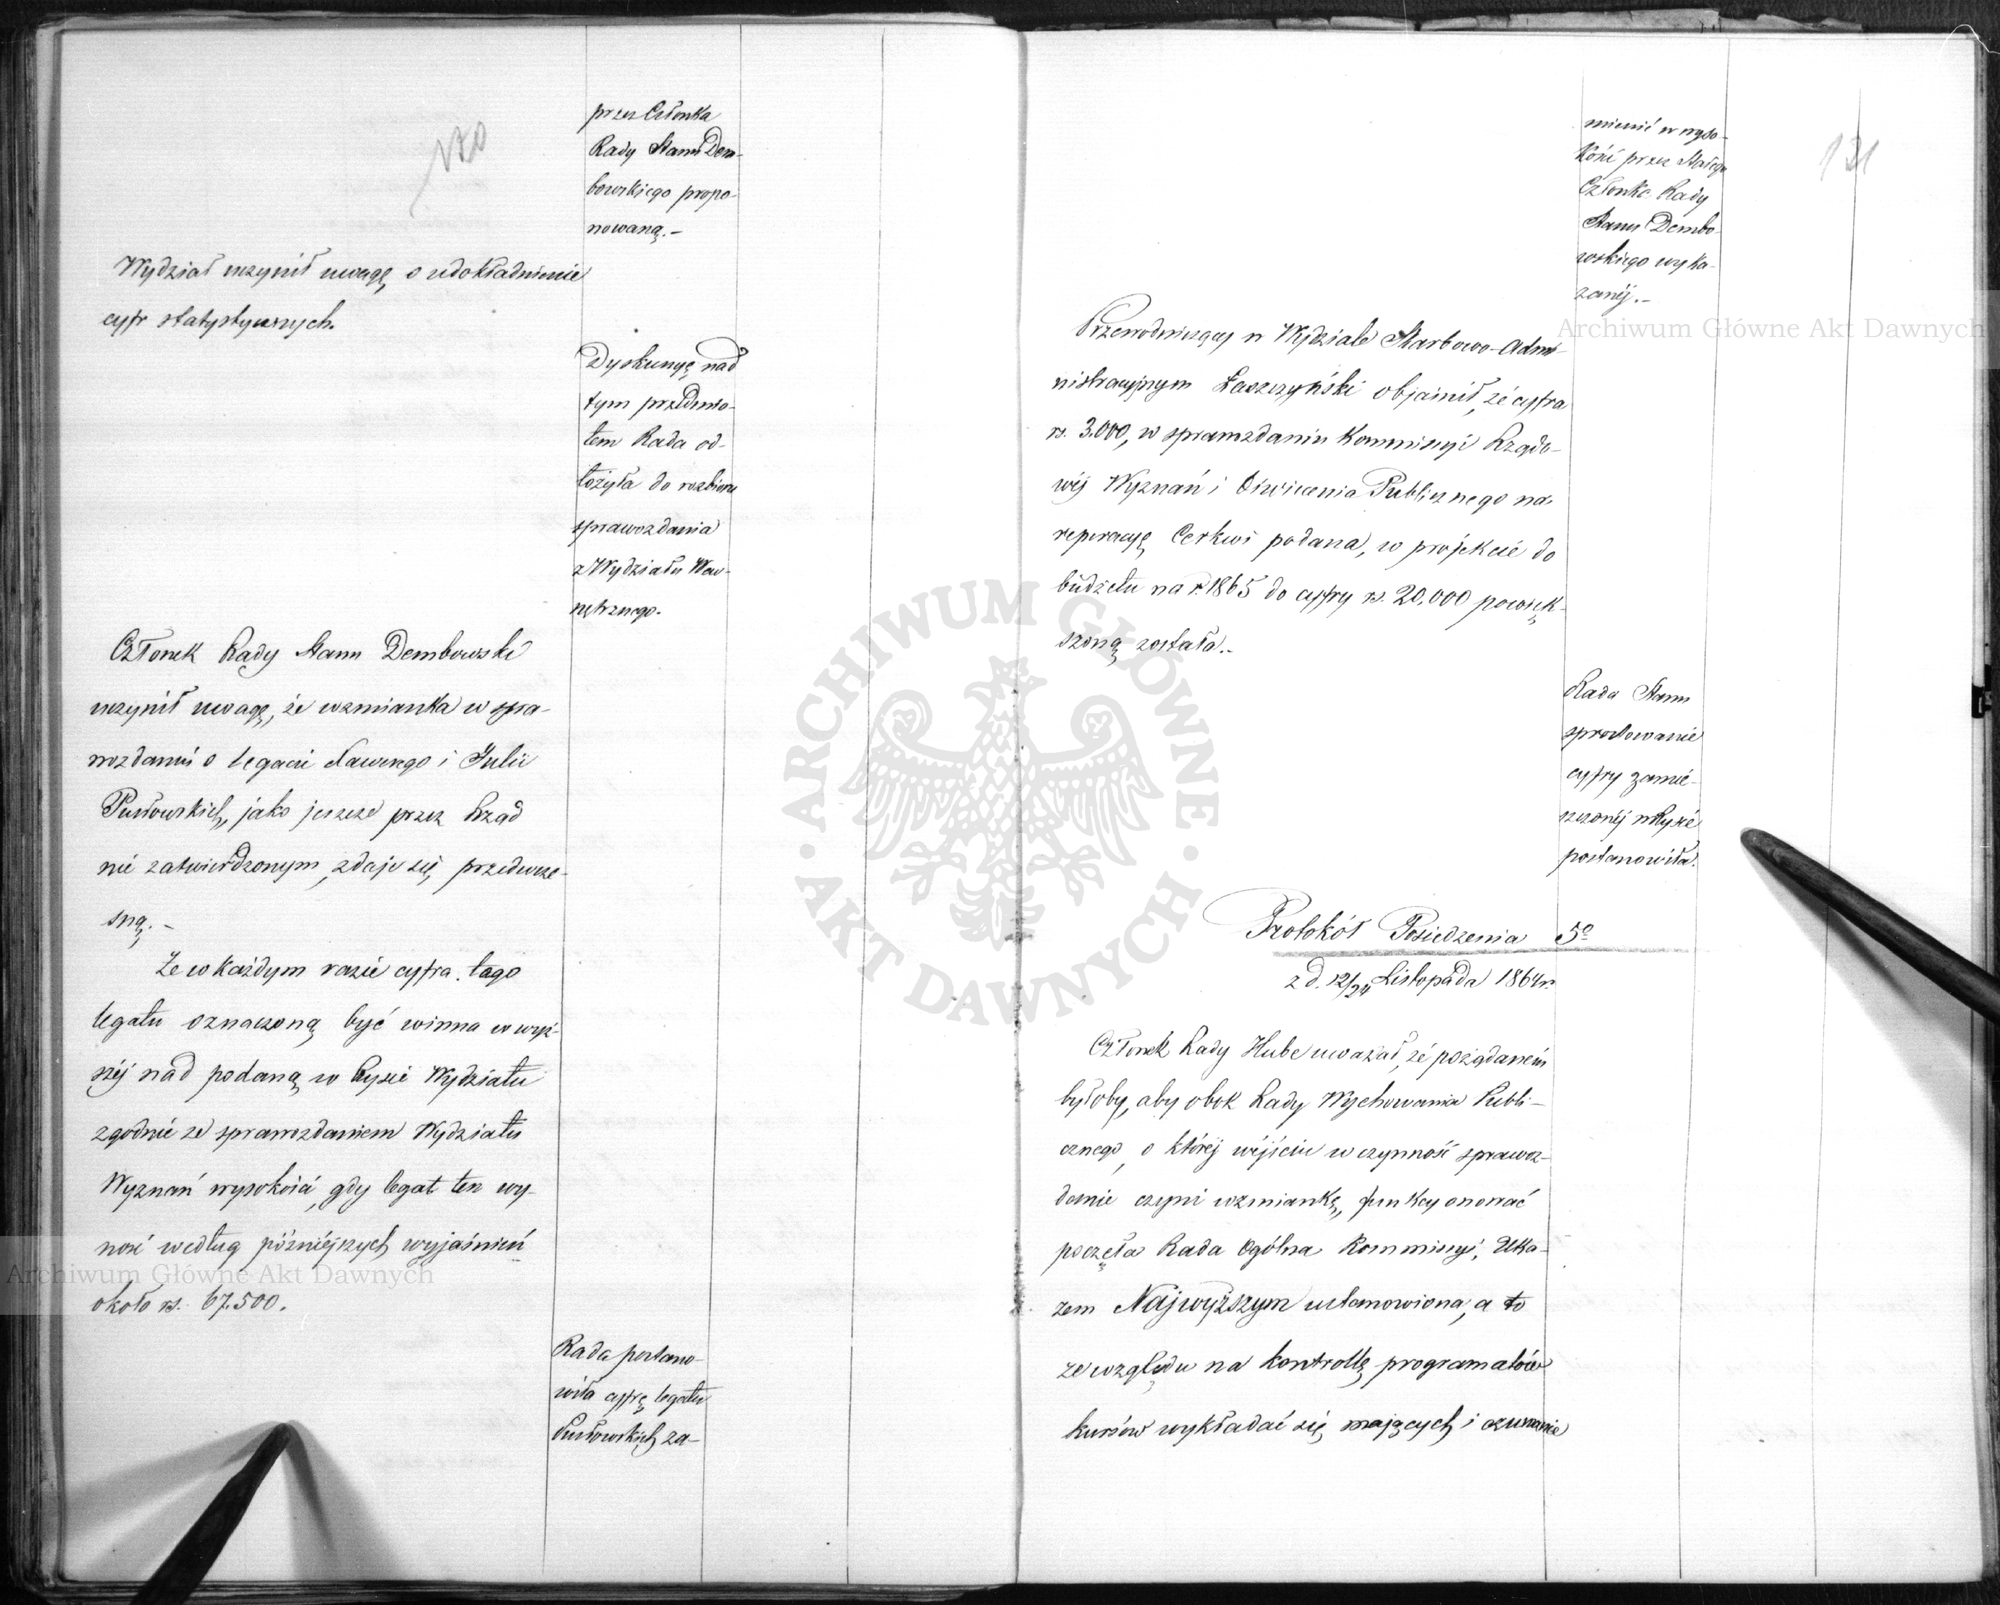 170
przez Członka
Rady Stanu Dem-
bowskiego propo-
nowaną.-
Wydział uczynił uwagę o udokładnienie
cyfr statystycznych.
Dyskusyę nad
tym przedmio-
tem Rada od-
łożyła do rozbioru
sprawozdania
z Wydziału Wew-
nętrznego.
Członek Rady Stanu Dembowski
uczynił uwagę, że wzmianka w spra-
wozdaniu o legacie Xawerego i Julii
Pusłowskich, jako jeszcze przez Rząd
nie zatwierdzonym, zdaje się przedwcze-
sną.-
Że w każdym razie cyfra tego
legatu oznaczoną być winna w wyż-
széj nad podaną w Rysie Wydziału
zgodnie ze sprawozdaniem Wydziału
Wyznań wysokości, gdy legat ten wy-
nosi według późniéjszych wyjaśnień
około rs. 67.500.
Rada postano-
wiła cyfrę legatu
Pusłowskich za-
131
mienić w wyso-
kość przez Stałego
Członka Rady
Stanu Dembo-
wskiego wyka-
zanéj.-
Przewodniczący w Wydziale Skarbowo-Admi-
nistracyjnym Łaszczyński objaśnił, że cyfra
rs. 3.000, w sprawozdaniu Kommissyi Rządo-
wéj Wyznań i Oświecenia Publicznego na
reperacyę Cerkwi podana, w projekcie do
budżetu na r. 1865 do cyfry rs. 20.000 powięk-
szoną została.-
Rada Stanu
sprostowanie
cyfry zamie-
szczonéj w Rysie
postanowiła.
Protokół Posiedzenia 5º
z d. 12/24 Listopada 1864 r.
Członek Rady Hube uważał, że pożądaném
byłoby, aby obok Rady Wychowania Publi-
cznego, o któréj wéjściu w czynność sprawoz-
danie czyni wzmiankę, funkcyonować
poczęła Rada Ogólna Kommissyi, Uka-
zem Najwyższym ustanowiona, a to
ze względu na kontrollę programatów
kursów wykładać się mających i czuwanie
Archiwum Główne Akt Dawnych
Archiwum Główne Akt Dawnych
ARCHIWUM GŁÓWNE · AKT DAWNYCH ·